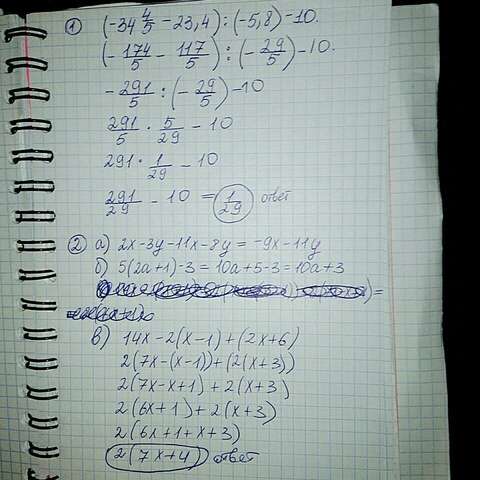 1 (-34 4/5 - 23,4) : (-5,8) - 10.
(- 174/5 - 117/5) : (- 29/5) - 10.
- 291/5 : (- 29/5) - 10
291/5 · 5/29 - 10
291 · 1/29 - 10
291/29 - 10 = 1/29 ответ
2 а) 2x-3y-11x-8y = -9x-11y
б) 5(2a+1)-3 = 10a+5-3 = 10a+3
в) 14x-2(x-1)+(2x+6)
2(7x-(x-1))+(2(x+3))
2(7x-x+1)+2(x+3)
2(6x+1)+2(x+3)
2(6x+1+x+3)
2(7x+4) ответ